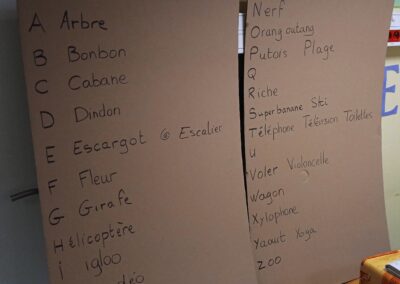 A Arbre
B Bonbon
C Cabane
D Dindon
E Escargot @ Escalier
F Fleur
G Girafe
Hélicoptère
i igloo
Nerf
Orang outang
Putois Plage
Q
Riche
Superbanane Ski
Téléphone Télévision Toilettes
U
Voler Violoncelle
Wagon
Xylophone
Yaourt Yoga
ZOO
E